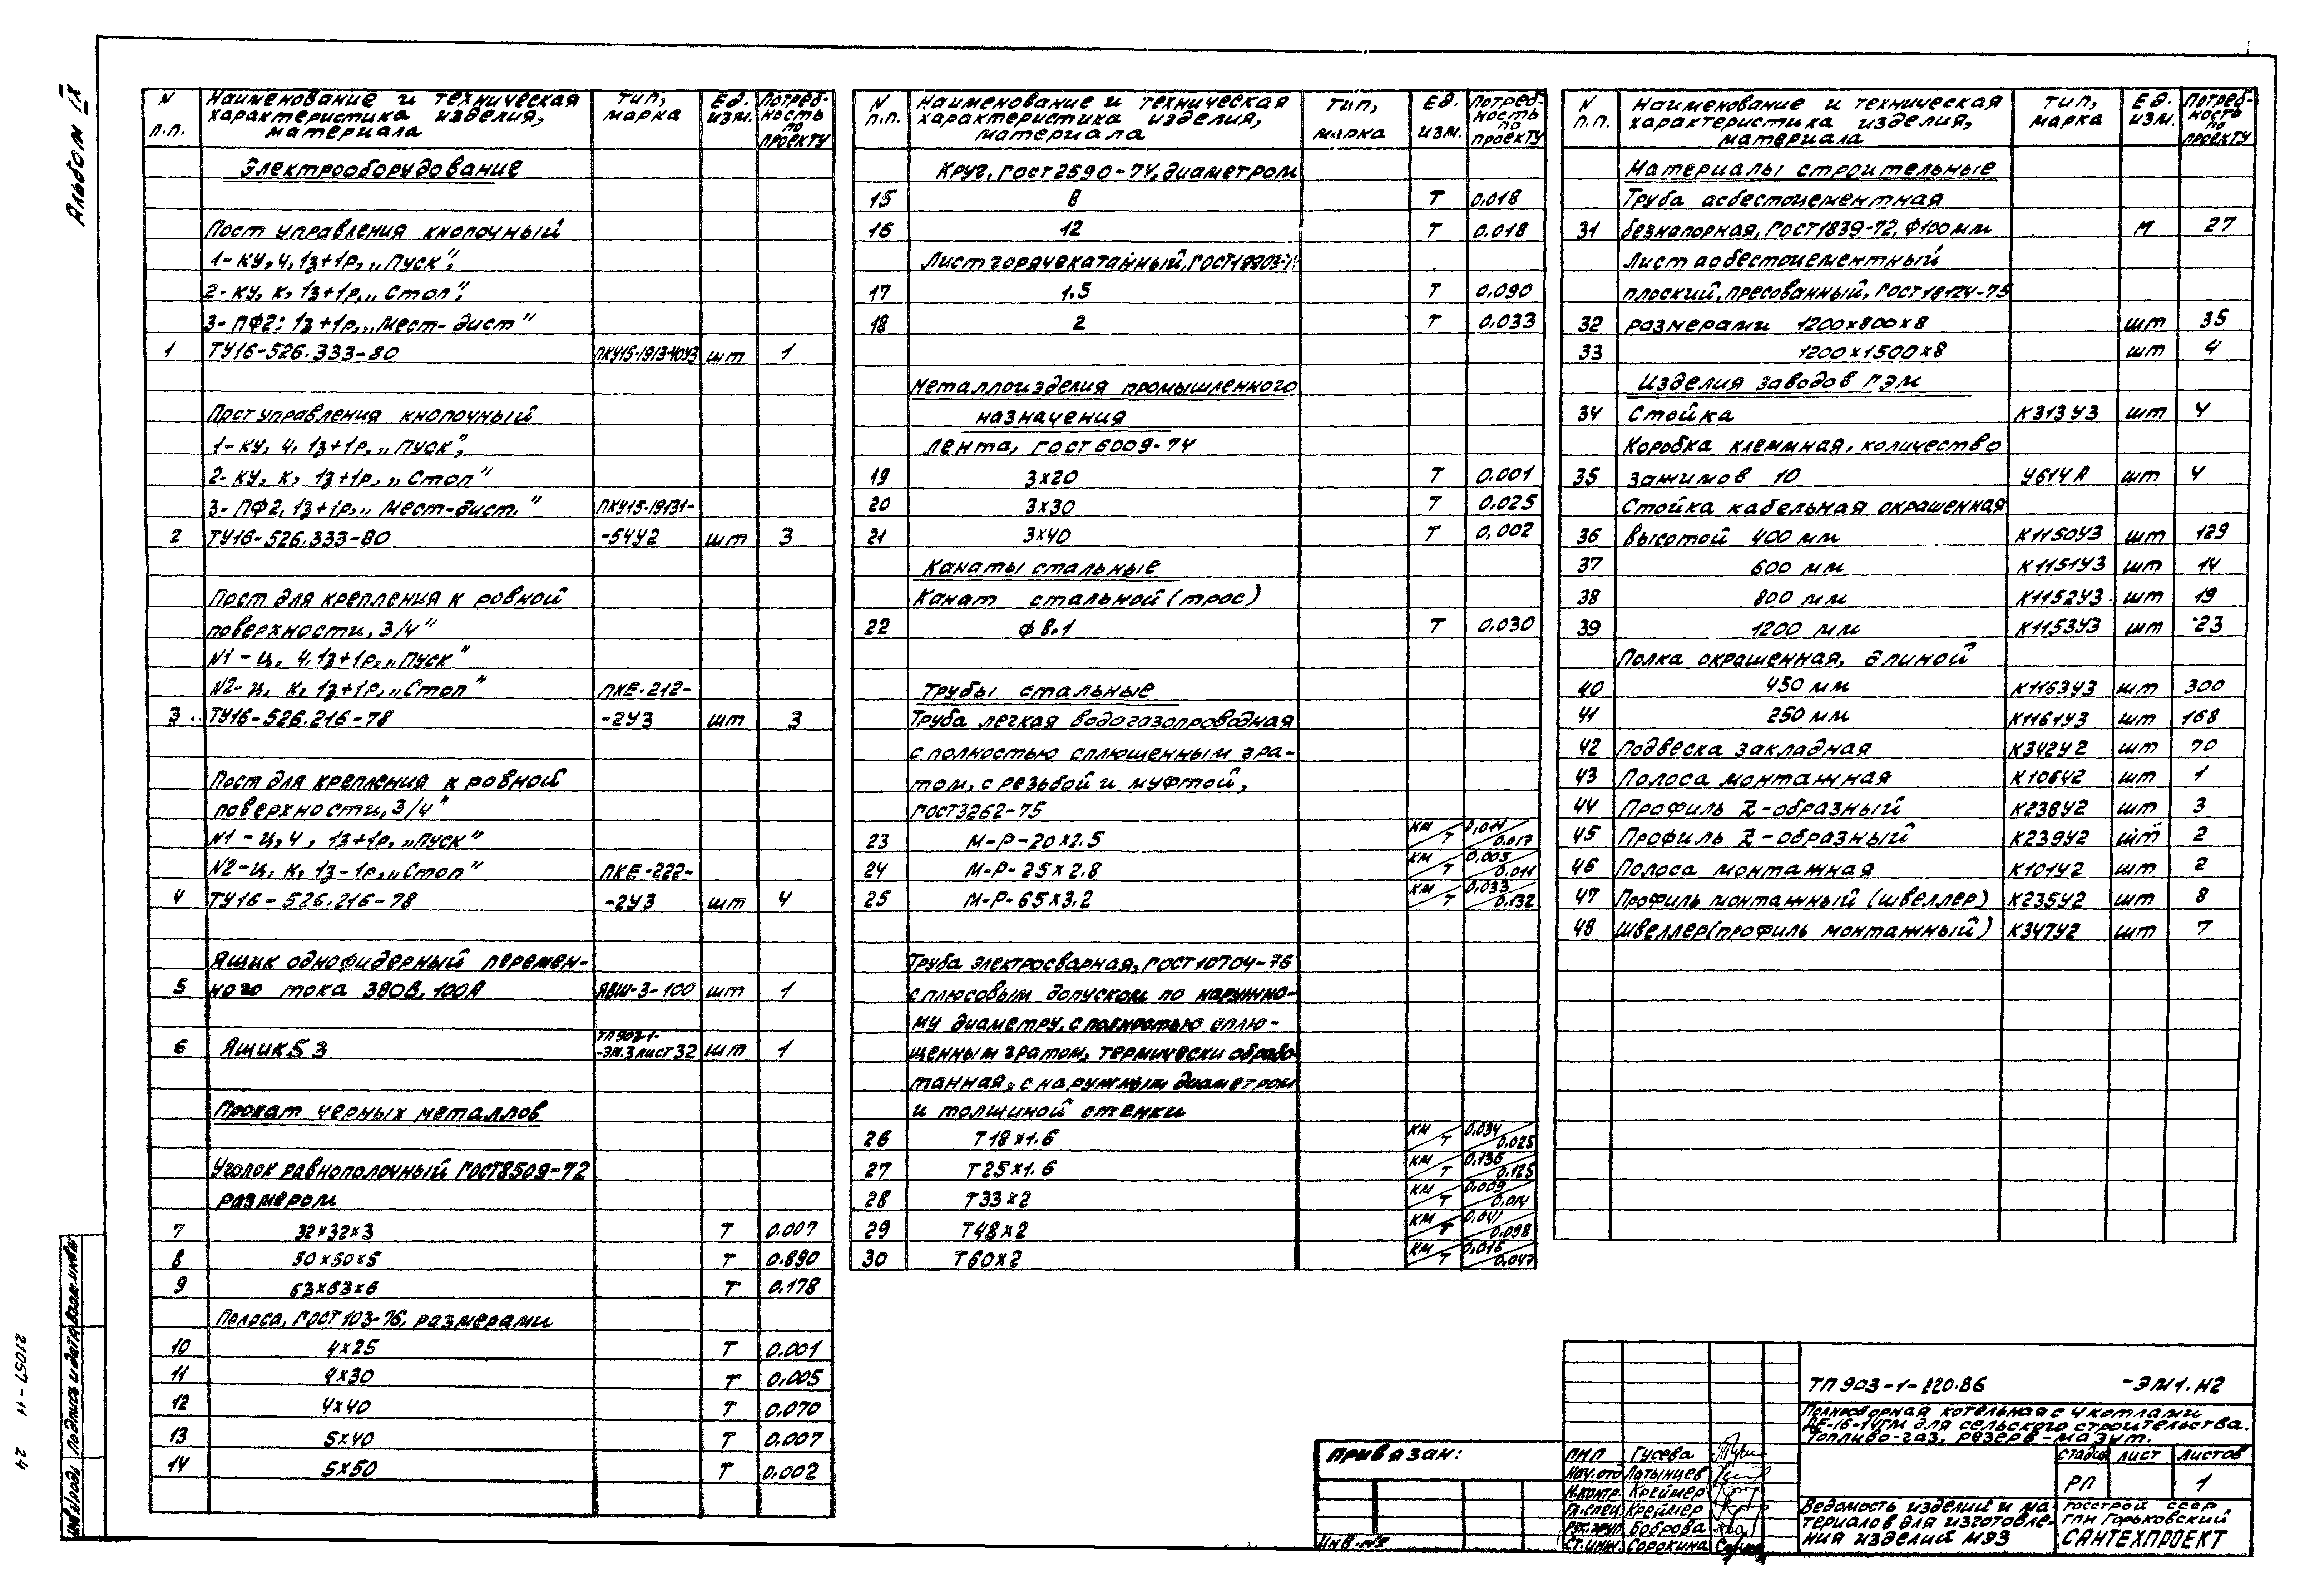 Альбом IX
N п.п. Наименование и техническая характеристика изделия, материала Тип, марка Ед. изм. Потребность по проекту
Электрооборудование
Пост управления кнопочный
1-КУ, Ч, 1з+1р, „Пуск",
2-КУ, К, 1з+1р, „Стоп",
3-ПФ2: 1з+1р, „Мест-дист"
1 ТУ16-526.333-80 шт 1
Пост управления кнопочный
1-КУ, Ч, 1з+1р, „Пуск",
2-КУ, К, 1з+1р, „Стоп"
3-ПФ2, 1з+1р, „Мест-дист." ПКУ15-19131-
2 ТУ16-526.333-80 -54У2 шт 3
Пост для крепления к ровной
поверхности, 3/4"
N1-ц, Ч, 1з+1р, „Пуск"
N2-ц, К, 1з+1р, „Стоп" ПКЕ-212-
3 ТУ16-526.216-78 -2У3 шт 3
Пост для крепления к ровной
поверхности, 3/4"
N1-ц, Ч, 1з+1р, „Пуск"
N2-ц, К, 1з-1р, „Стоп" ПКЕ-222-
4 ТУ16-526.216-78 -2У3 шт 4
Ящик однофидерный перемен-
5 ного тока 380В, 100А ЯВШ-3-100 шт 1
ТП903-1-
6 Ящик 53 -ЭМ.3 лист 32 шт 1
Прокат черных металлов
Уголок равнополочный ГОСТ8509-72
размером
7 32х32х3 Т 0.007
8 50х50х5 Т 0.890
9 63х63х6 Т 0.178
Полоса, ГОСТ 103-76, размерами
10 4х25 Т 0.001
11 4х30 Т 0.005
12 4х40 Т 0.070
13 5х40 Т 0.007
14 5х50 Т 0.002
N п.п. Наименование и техническая характеристика изделия, материала Тип, марка Ед. изм. Потребность по проекту
Круг, ГОСТ 2590-74, диаметром
15 8 Т 0.018
16 12 Т 0.018
Лист горячекатанный, ГОСТ19903-
17 1.5 Т 0.090
18 2 Т 0.033
Металлоизделия промышленного
назначения
Лента, ГОСТ 6009-74
19 3х20 Т 0.001
20 3х30 Т 0.025
21 3х40 Т 0.002
Канаты стальные
Канат стальной (трос)
22 ф 8.1 Т 0.030
Трубы стальные
Труба легкая водогазопроводная
с полностью сплющенным гра-
том, с резьбой и муфтой,
ГОСТ3262-75
23 М-Р-20х2.5 км/Т 0.011/0.017
24 М-Р-25х2.8 км/Т 0.005/0.011
25 М-Р-65х3.2 км/Т 0.033/0.132
Труба электросварная, ГОСТ10704-76
с плюсовым допуском по наружно-
му диаметру, с полностью сплю-
щенным гратом, термически обрабо-
танная, с наружным диаметром
и толщиной стенки
26 Т18х1.6 км/Т 0.034/0.025
27 Т25х1.6 км/Т 0.136/0.125
28 Т33х2 км/Т 0.009/0.014
29 Т48х2 км/Т 0.041/0.098
30 Т60х2 км/Т 0.016/0.047
N п.п. Наименование и техническая характеристика изделия, материала Тип, марка Ед. изм. Потребность по проекту
Материалы строительные
Труба асбестоцементная
31 безнапорная, ГОСТ1839-72, Ф100мм м 27
Лист асбестоцементный
плоский, пресованный, ГОСТ18124-75
32 размерами 1200х800х8 шт 35
33 1200х1500х8 шт 4
Изделия заводов ГЭМ
34 Стойка К313У3 шт 4
Коробка клеммная, количество
35 зажимов 10 У614А шт 4
Стойка кабельная окрашенная
36 высотой 400 мм К1150У3 шт 129
37 600 мм К1151У3 шт 14
38 800 мм К1152У3 шт 19
39 1200 мм К1153У3 шт 23
Полка окрашенная, длиной
40 450 мм К1163У3 шт 300
41 250 мм К1161У3 шт 168
42 Подвеска закладная К342У2 шт 70
43 Полоса монтажная К106У2 шт 1
44 Профиль Z-образный К238У2 шт 3
45 Профиль Z-образный К239У2 шт 2
46 Полоса монтажная К101У2 шт 2
47 Профиль монтажный (швеллер) К235У2 шт 8
48 Швеллер (профиль монтажный) К347У2 шт 7
ТП 903-1-220.86 -ЭМ1.И2
Полносборная котельная с 4 котлами
ДЕ-16-14ГМ для сельского строительства.
Топливо-газ, резерв-мазут.
Стадия Лист Листов
РП 1
Ведомость изделий и ма-
териалов для изготовле-
ния изделий МЭЗ
Госстрой СССР
ГПИ Горьковский
САНТЕХПРОЕКТ
Привязан:
Инв.№
ГИП Гусева
Нач.отд Латынцев
Н.контр. Креймер
Гл.спец. Креймер
Рук.груп. Боброва
Ст.инж. Сорокина
Инв.№подл. Подпись и дата Взам.инв.№
21057-11 24